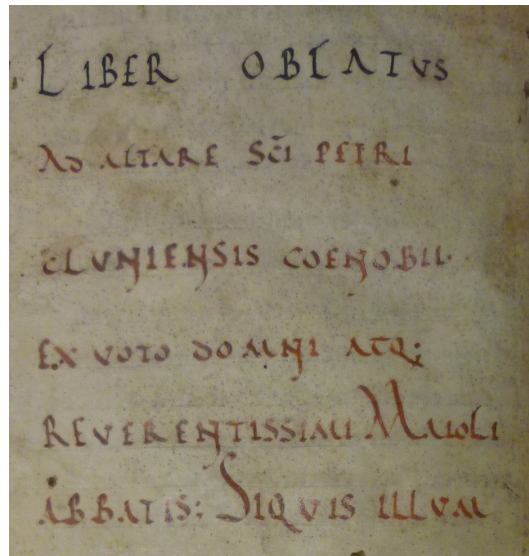 LIBER OBLATUS
AD ALTARE SC̄I PETRI
CLUNIENSIS COENOBII·
EX VOTO DOMNI ATQ;
REVERENTISSIMI MAIOLI
ABBATIS: SIQUIS ILLUM